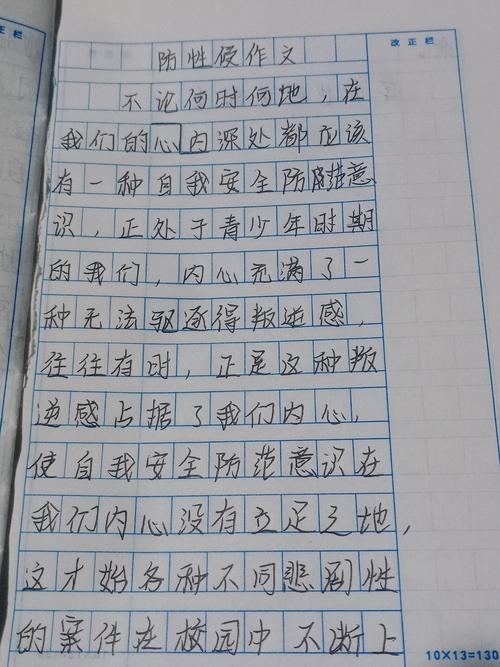 防性侵作文
改正栏
不论何时何地，在
我们的心内深处都应该
有一种自我安全防范意
识，正处于青少年时期
的我们，内心充满了一
种无法驱逐得叛逆感，
往往有时，正是这种叛
逆感占据了我们内心，
使自我安全防范意识在
我们内心没有立足之地，
这才始各种不同悲剧性
的案件在校园中不断上
10×13=130